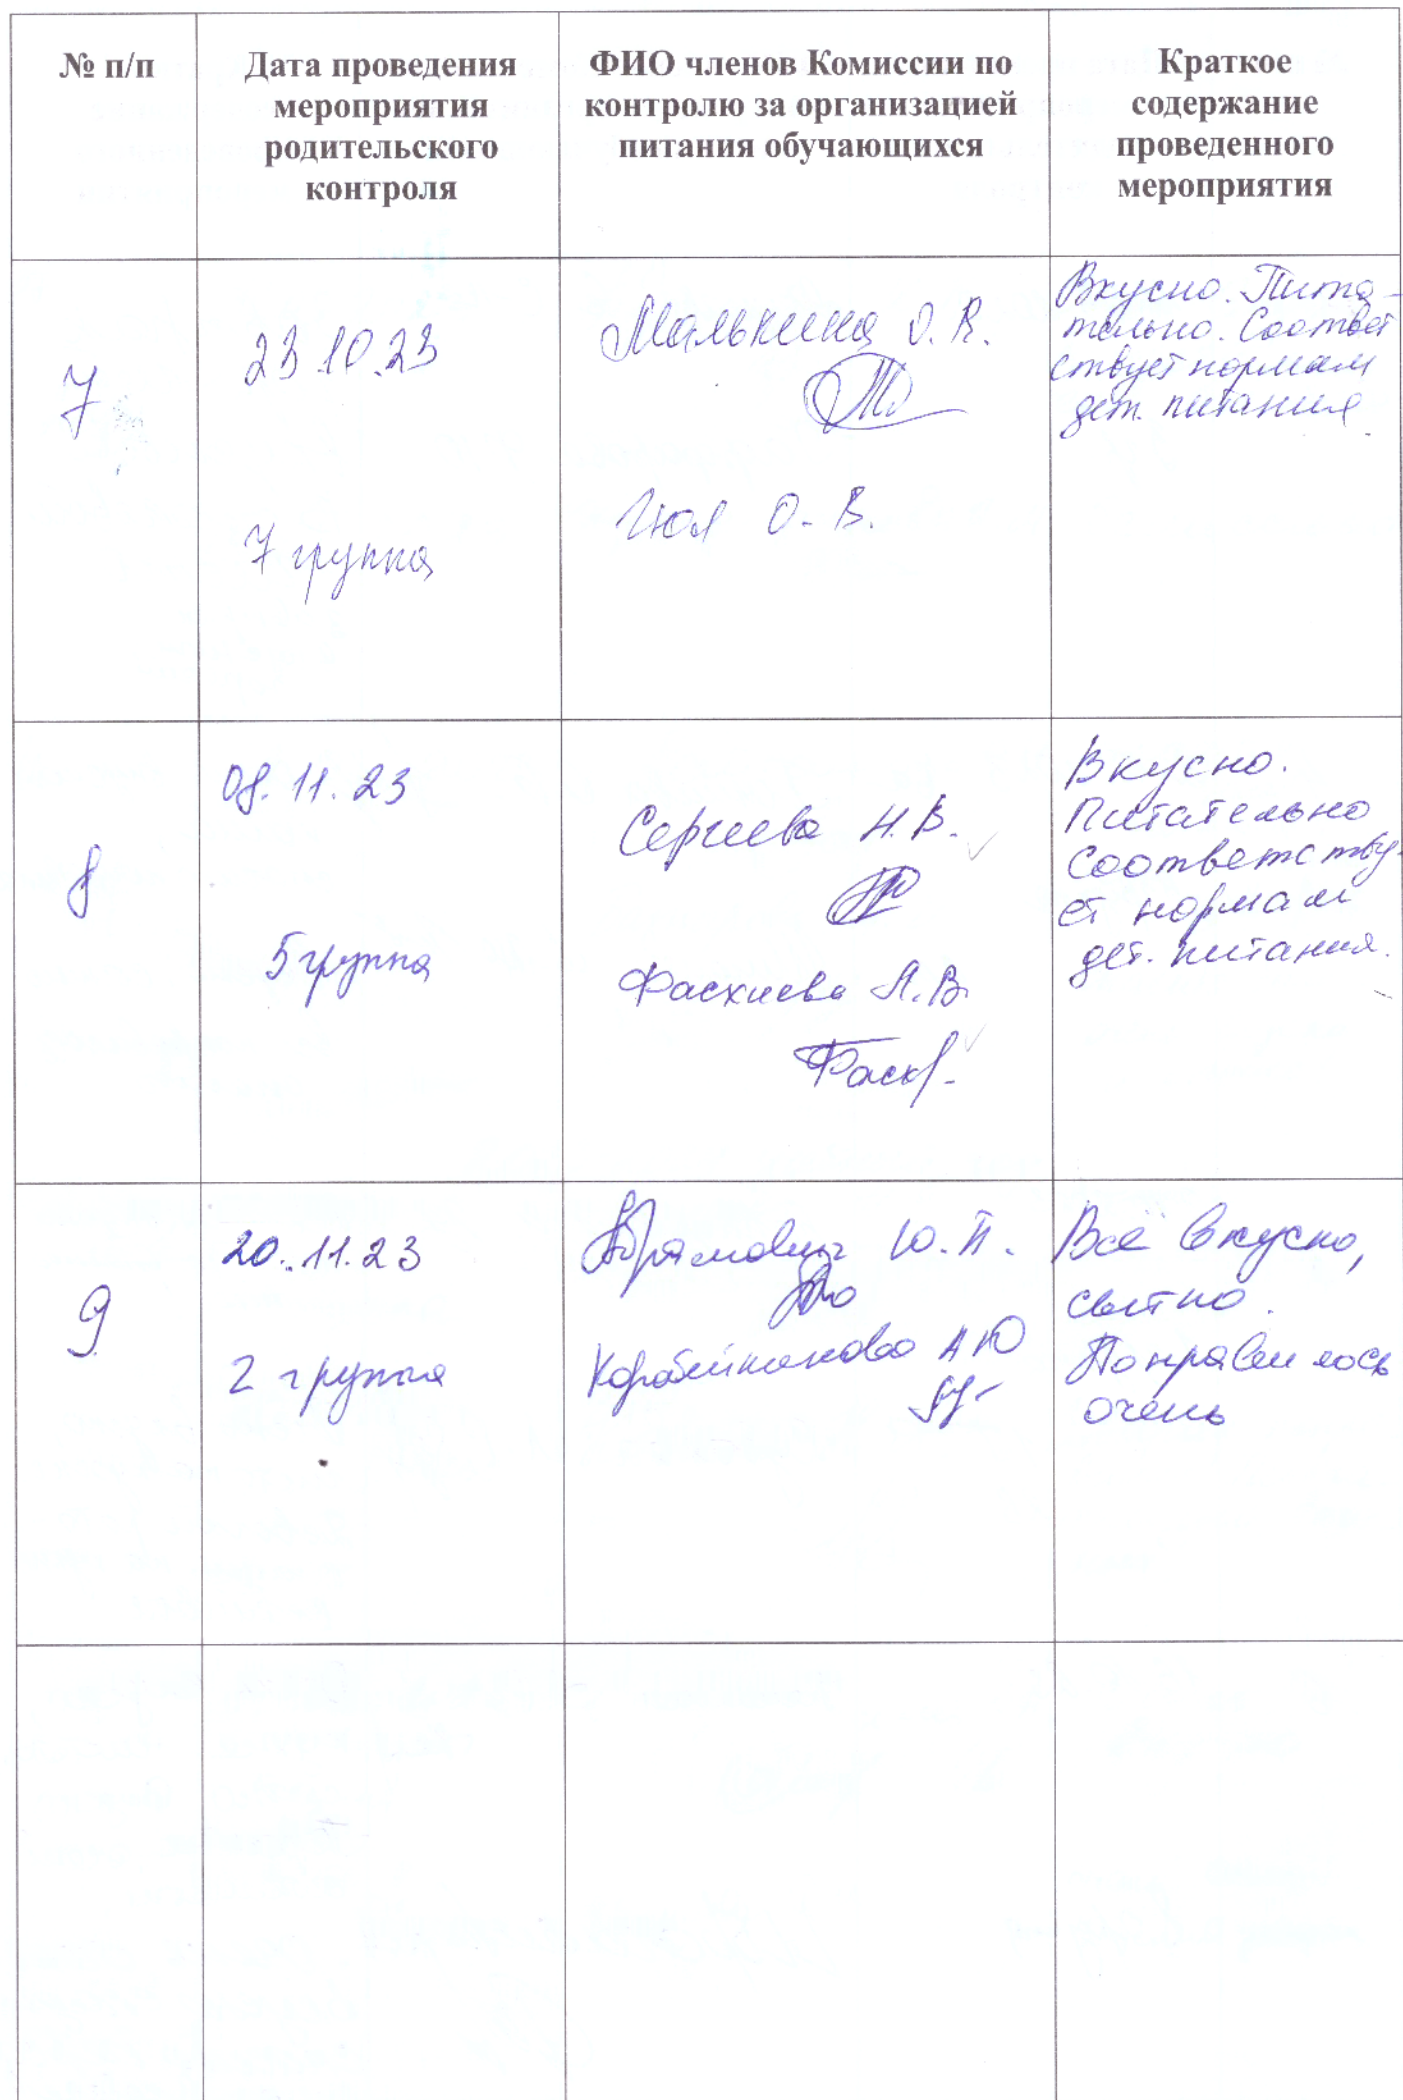 № п/п
Дата проведения
мероприятия
родительского
контроля
ФИО членов Комиссии по
контролю за организацией
питания обучающихся
Краткое
содержание
проведенного
мероприятия
7
23.10.23
7 группа
Малькина О. В.
Гюл О. В.
Вкусно. Пита-
тельно. Соответ
ствует нормам
дет. питания
8
08.11.23
5 группа
Сергеева Н. В.
Фасхиева А. В.
Вкусно.
Питательно
Соответству-
ет нормам
дет. питания.
9
20.11.23
2 группа
Абрамович Ю. П.
Коробейникова А Ю
Всё вкусно,
сытно.
Понравилось
очень